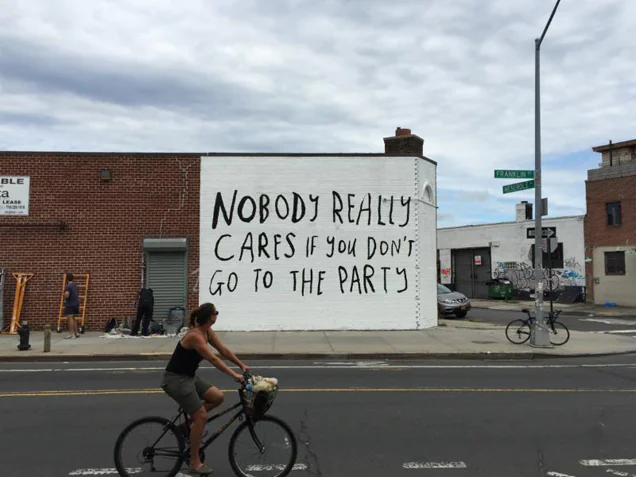 BLE
ta
LEASE
FRANKLIN ST
NOBODY REALLY
CARES IF YOU DON'T
GO TO THE PARTY